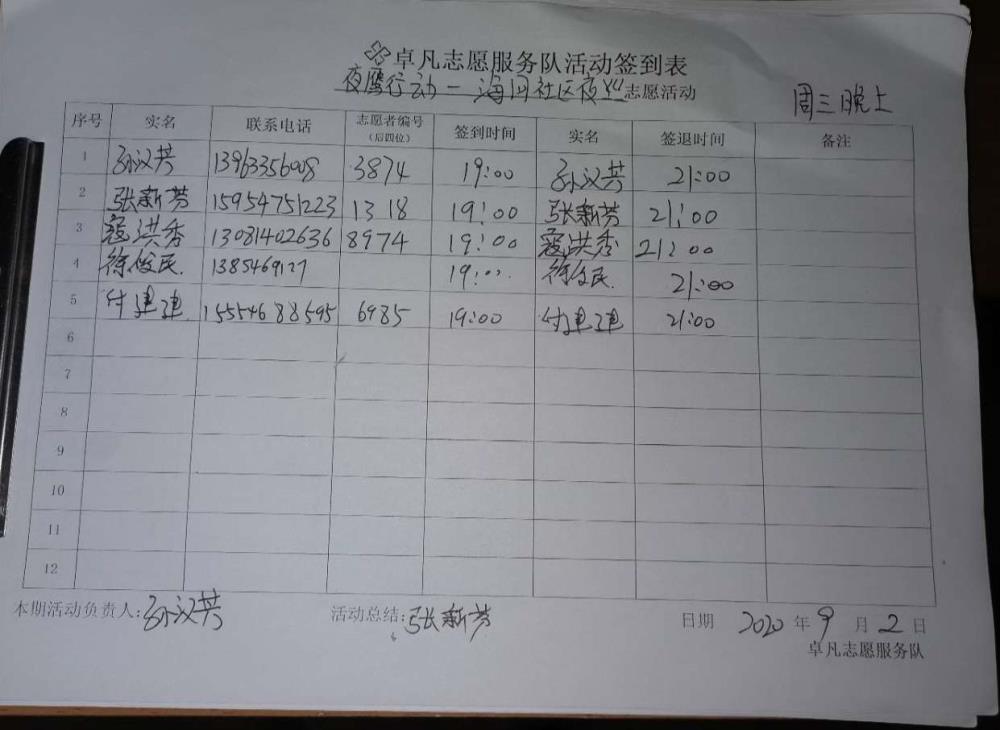 卓凡志愿服务队活动签到表
夜鹰行动一海河社区夜巡志愿活动
周三晚上
序号 实名 联系电话 志愿者编号（后四位） 签到时间 实名 签退时间 备注
1 孙汉芳 13963356008 3874 19:00 孙汉芳 21:00
2 张新芳 15954751223 1318 19:00 张新芳 21:00
3 寇洪秀 13081402636 8974 19:00 寇洪秀 21:00
4 徐俊民 19:00 徐俊民 21:00
5 付建建 15554688595 6985 19:00 付建建 21:00
6
7
8
9
10
11
12
本期活动负责人:孙汉芳 活动总结:张新芳 日期 2020 年 9 月 2 日
卓凡志愿服务队